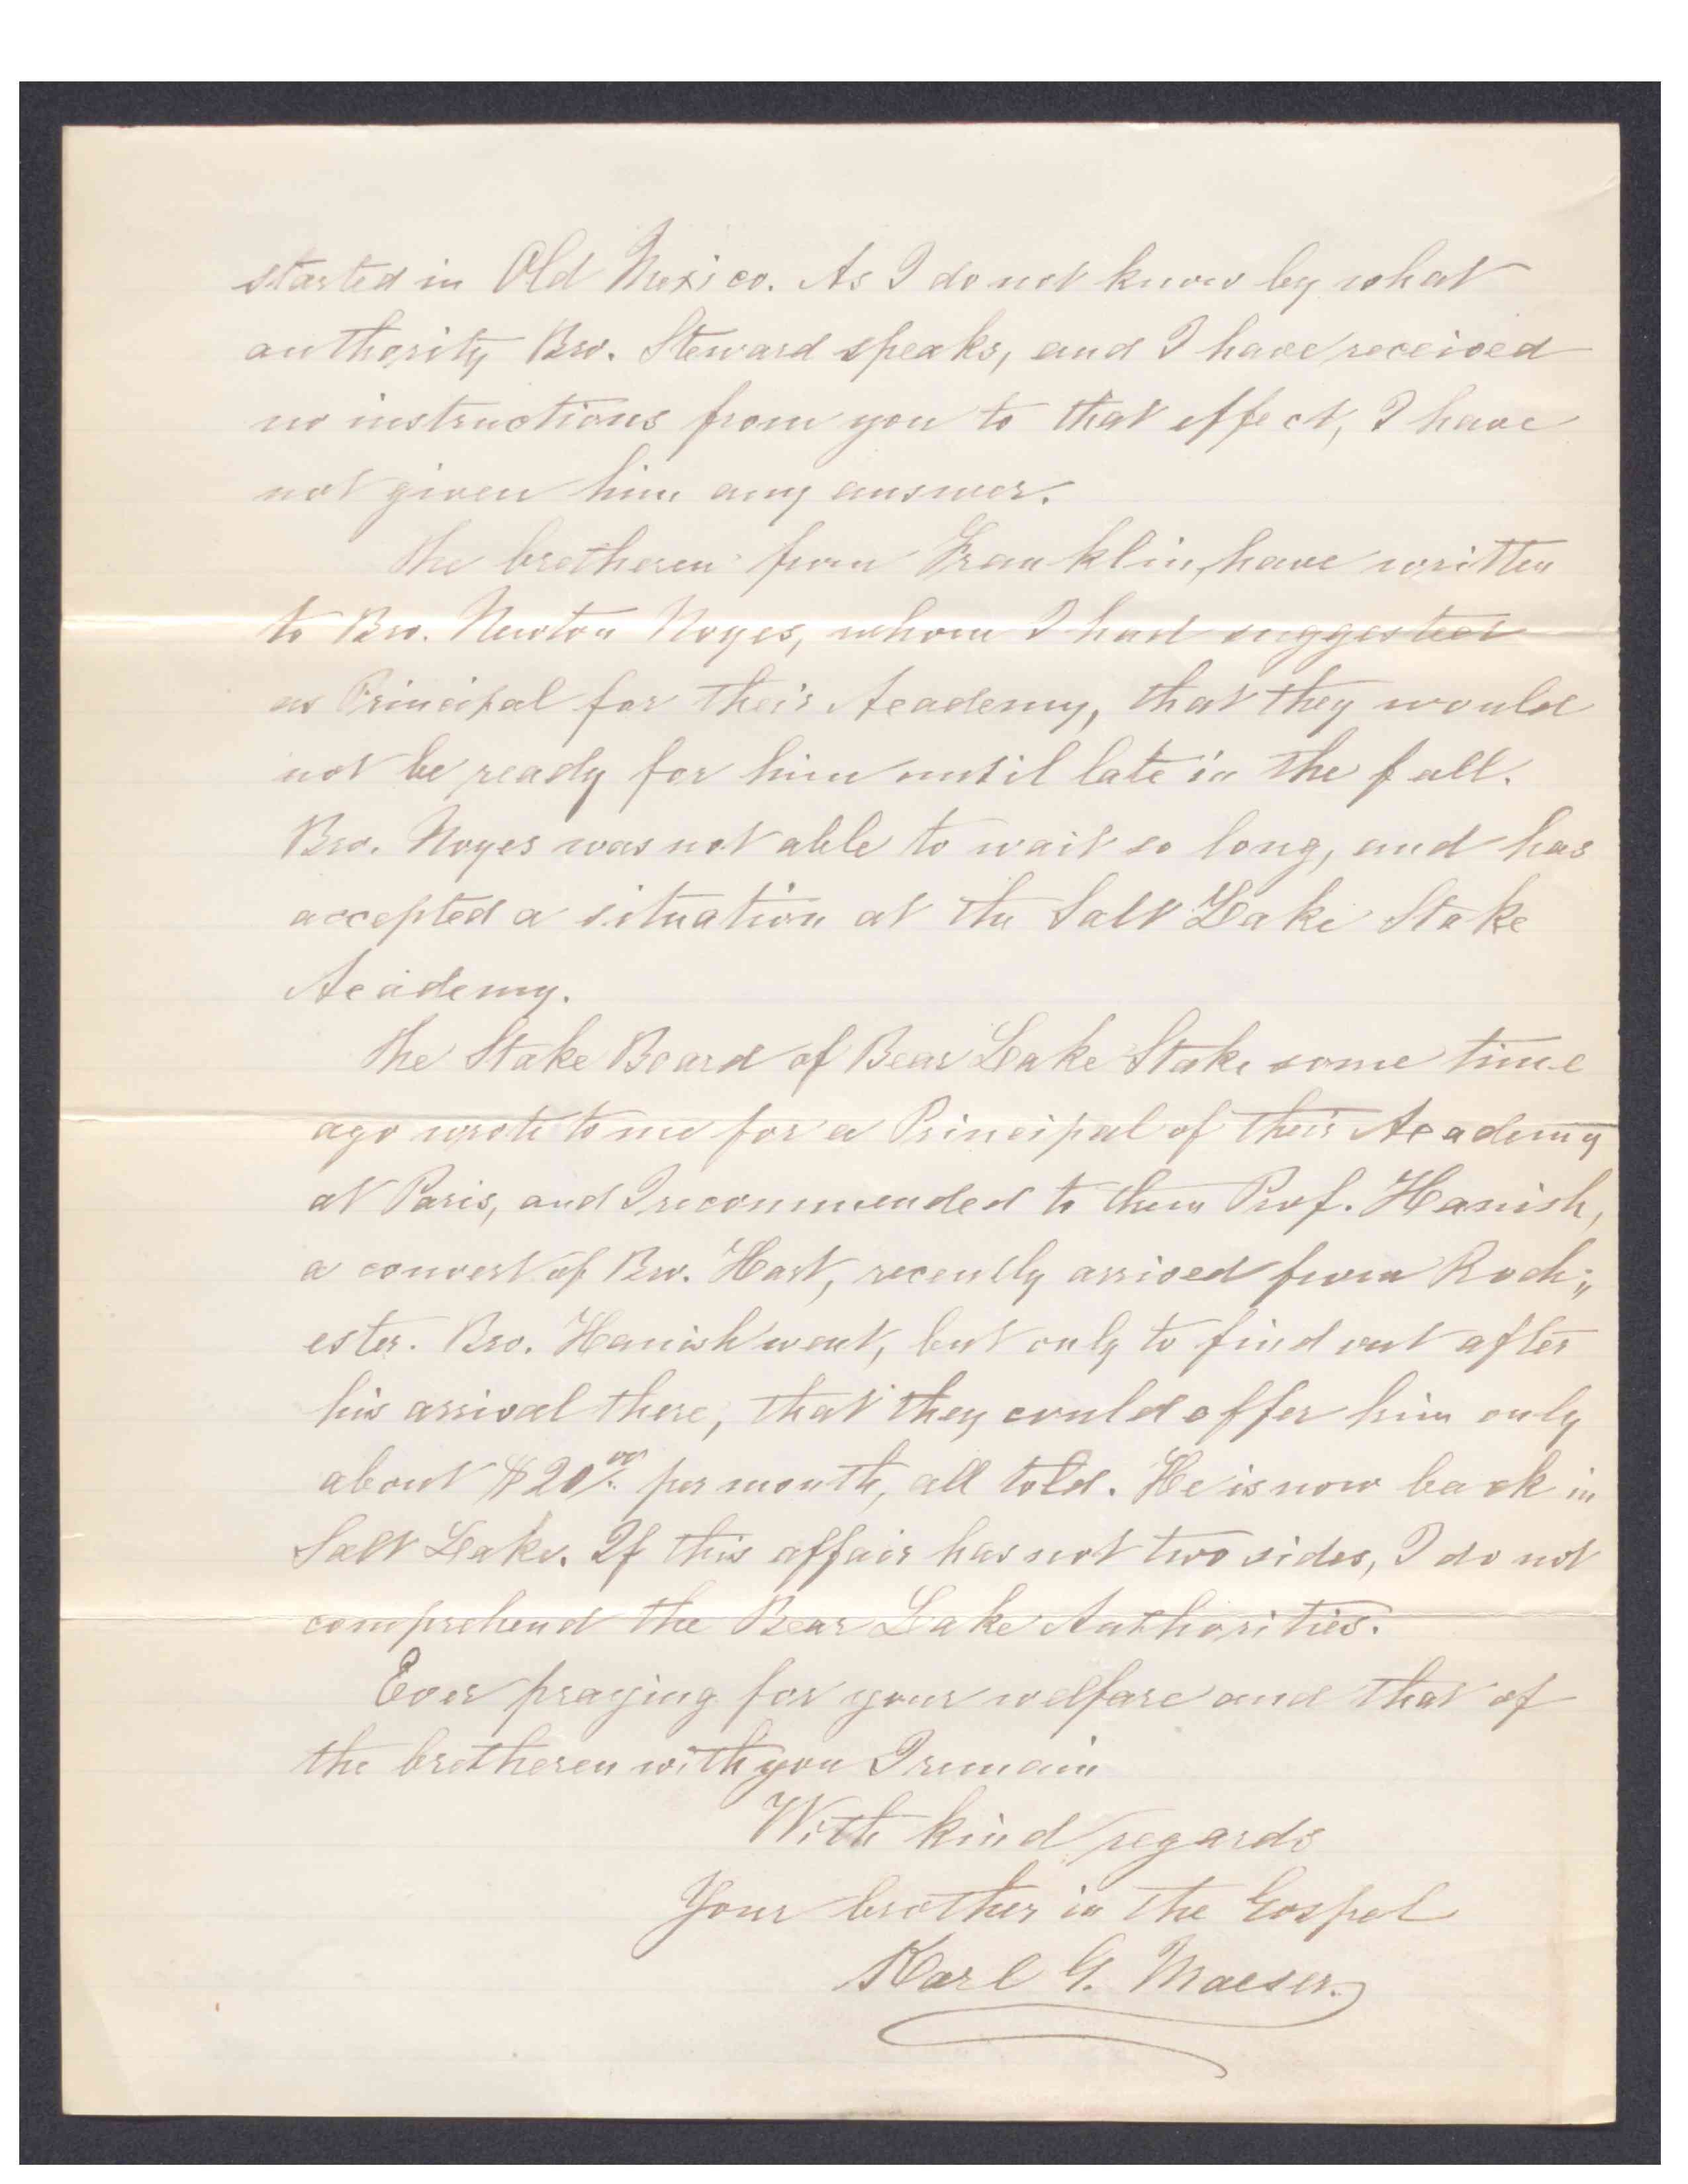 started in Old Mexico. As I do not know by what
authority Bro. Steward speaks, and I have received
no instructions from you to that effect, I have
not given him any answer.
The bretheren from Franklin, have written
to Bro. Newton Noyes, whom I had suggested
as Principal for their Academy, that they would
not be ready for him until late in the fall.
Bro. Noyes was not able to wait so long, and has
accepted a situation at the Salt Lake Stake
Academy.
The Stake Board of Bear Lake Stake some time
ago wrote to me for a Principal of their Academy
at Paris, and I recommended to them Prof. Hanish,
a convert of Bro. Hart, recently arrived from Roch-
ester. Bro. Hanish went, but only to find out after
his arrival there, that they could offer him only
about $20.00 per month, all told. He is now back in
Salt Lake. If this affair has not two sides, I do not
comprehend the Bear Lake Authorities.
Ever praying for your welfare and that of
the bretheren with you I remain
With kind regards
Your brother in the Gospel
Karl G. Maeser.